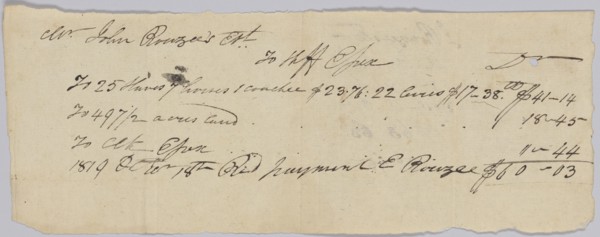 Mr. John Rouzee's Est.
To Shff Essex Dr
To 25 Slaves 7 horses 1 coachee $23.76: 22 levies $17-38. $41-14
To 497 1/2 acres land 18-45
To Clk Essex 0-44
1819 18th Recd payment E Rouzee $60-03